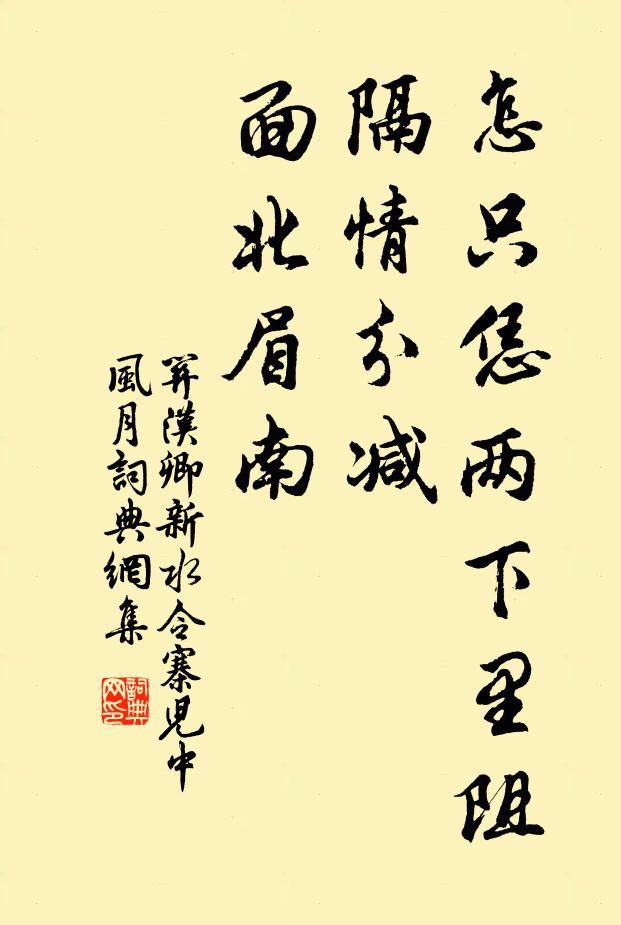 怎只恁两下里阻
隔情分减
面北眉南
关漢卿新水令寨児中
風月詞典網集
詞典
网印